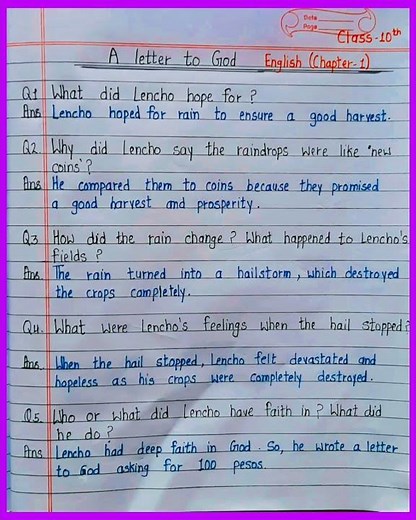 Date
Page
Class-10th
A letter to God English (Chapter-1)
Q1 What did Lencho hope for ?
Ans Lencho hoped for rain to ensure a good harvest.
Q2. Why did Lencho say the raindrops were like 'new
coins'?
Ans He compared them to coins because they promised
a good harvest and prosperity.
Q3 How did the rain change ? What happened to Lencho's
fields ?
Ans. The rain turned into a hailstorm, which destroyed
the crops completely.
Q4. What were Lencho's feelings when the hail stopped?
Ans. When the hail stopped, Lencho felt devastated and
hopeless as his crops were completely destroyed.
Q5. Who or what did Lencho have faith in ? What did
he do ?
Ans Lencho had deep faith in God. So, he wrote a letter
to God asking for 100 pesos.